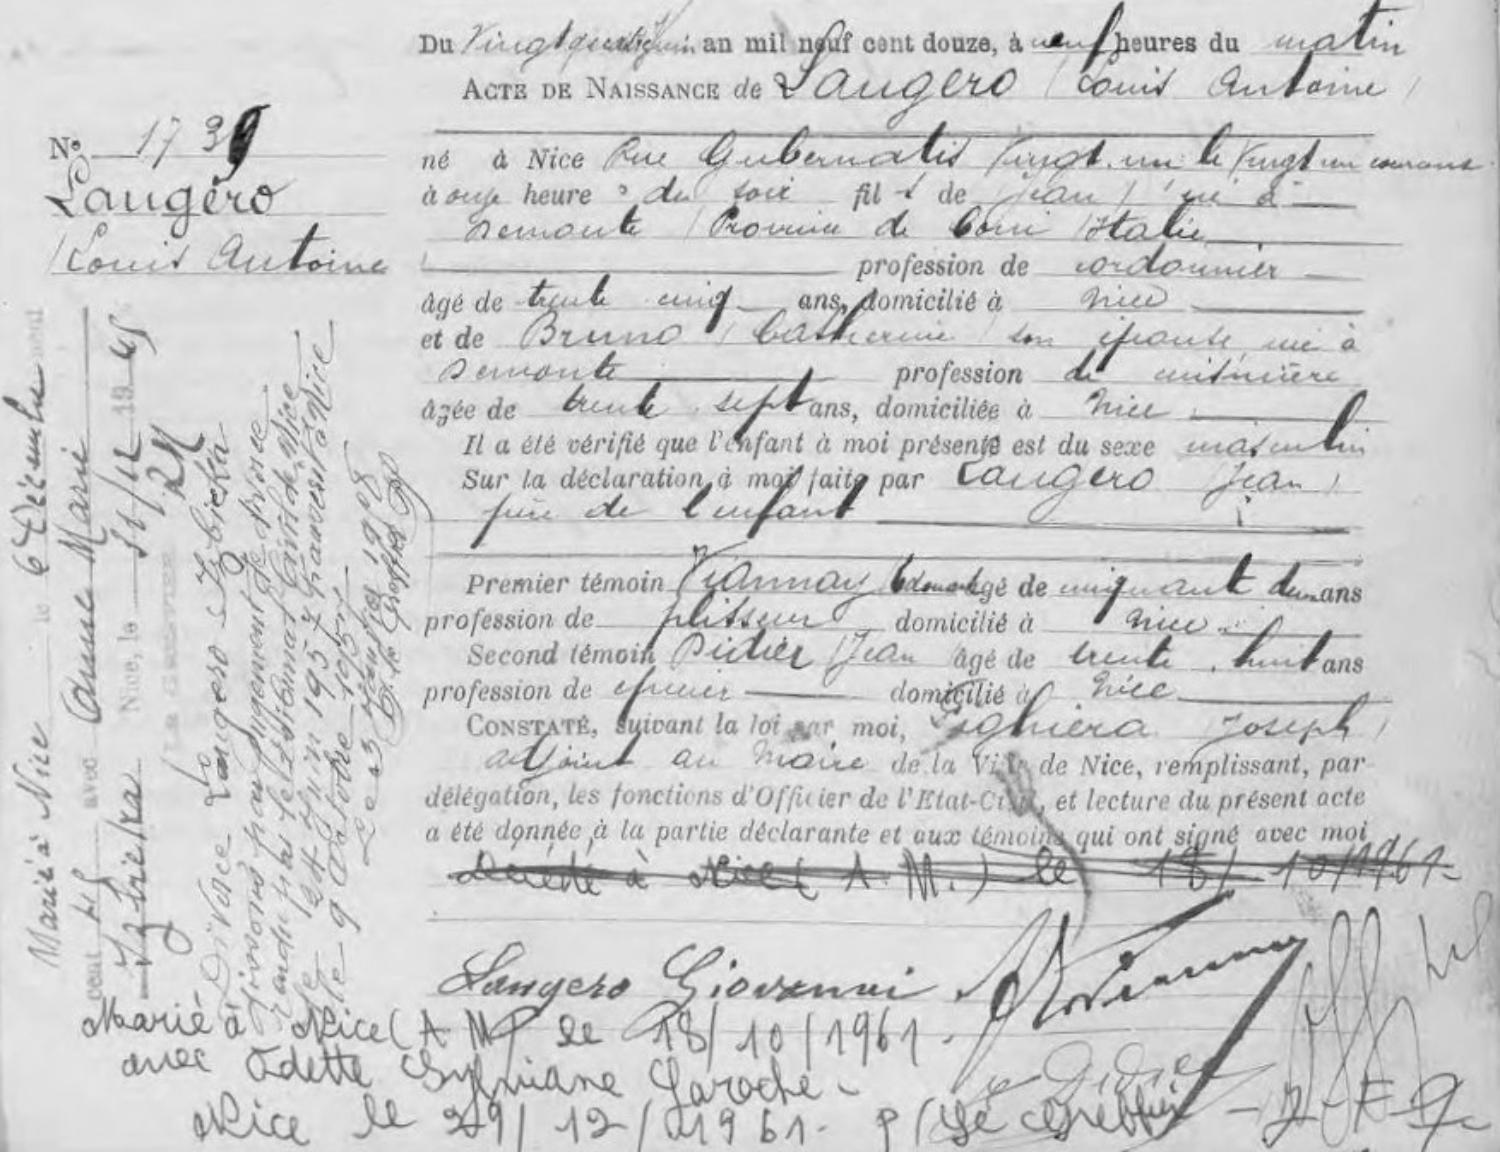 Du Vingt quatre juin an mil neuf cent douze, à neuf heures du matin
ACTE DE NAISSANCE de Laugero (Louis Antoine)
N° 1739
Laugero
(Louis Antoine
né à Nice Rue Gubernatis Vingt un le Vingt un courant
à onze heures du soir fils de Jean, né à
Demonte (Province de Coni Italie
profession de cordonnier
âgé de trente cinq ans, domicilié à Nice
et de Bruno (Catherine) son épouse, née à
Demonte profession de cuisinière
âgée de trente sept ans, domiciliée à Nice
Il a été vérifié que l'enfant à moi présenté est du sexe masculin
Sur la déclaration à moi faite par Laugero (Jean)
père de l'enfant
Premier témoin Viannay Edouard âgé de cinquante deux ans
profession de plisseur domicilié à Nice
Second témoin Didier (Jean âgé de trente huit ans
profession de épicier domicilié à Nice
CONSTATÉ, suivant la loi par moi, Sghiera Joseph)
adjoint au Maire de la Ville de Nice, remplissant, par
délégation, les fonctions d'Officier de l'Etat-Civil, et lecture du présent acte
a été donnée à la partie déclarante et aux témoins qui ont signé avec moi
Décédé à Nice (A.M.) le 18/10/1961
Laugero Giovanni
Marié à Nice le 6 Décembre
cent 45 avec Anna Marie
Izbicka Nice, le 11/12 1945
LE GREFFIER
Divorce Laugero - Izbicka
Divorcés par jugement de divorce
rendu par le Tribunal Civil de Nice
le 24 Juin 1957 transcrit à Nice
le 9 Octobre 1957
Le 3 1958
Le Greffier
Marié à Nice (A M) le 18/10/1961
avec Odette Sylviane Laroche
Nice le 29/12/1961. p/Le Greffier